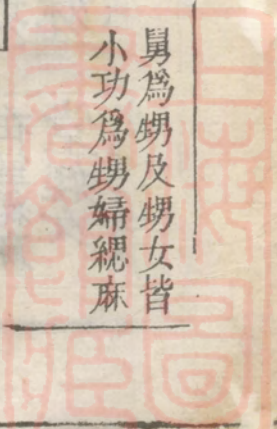 舅爲甥及甥女皆
小功爲甥婦緦麻